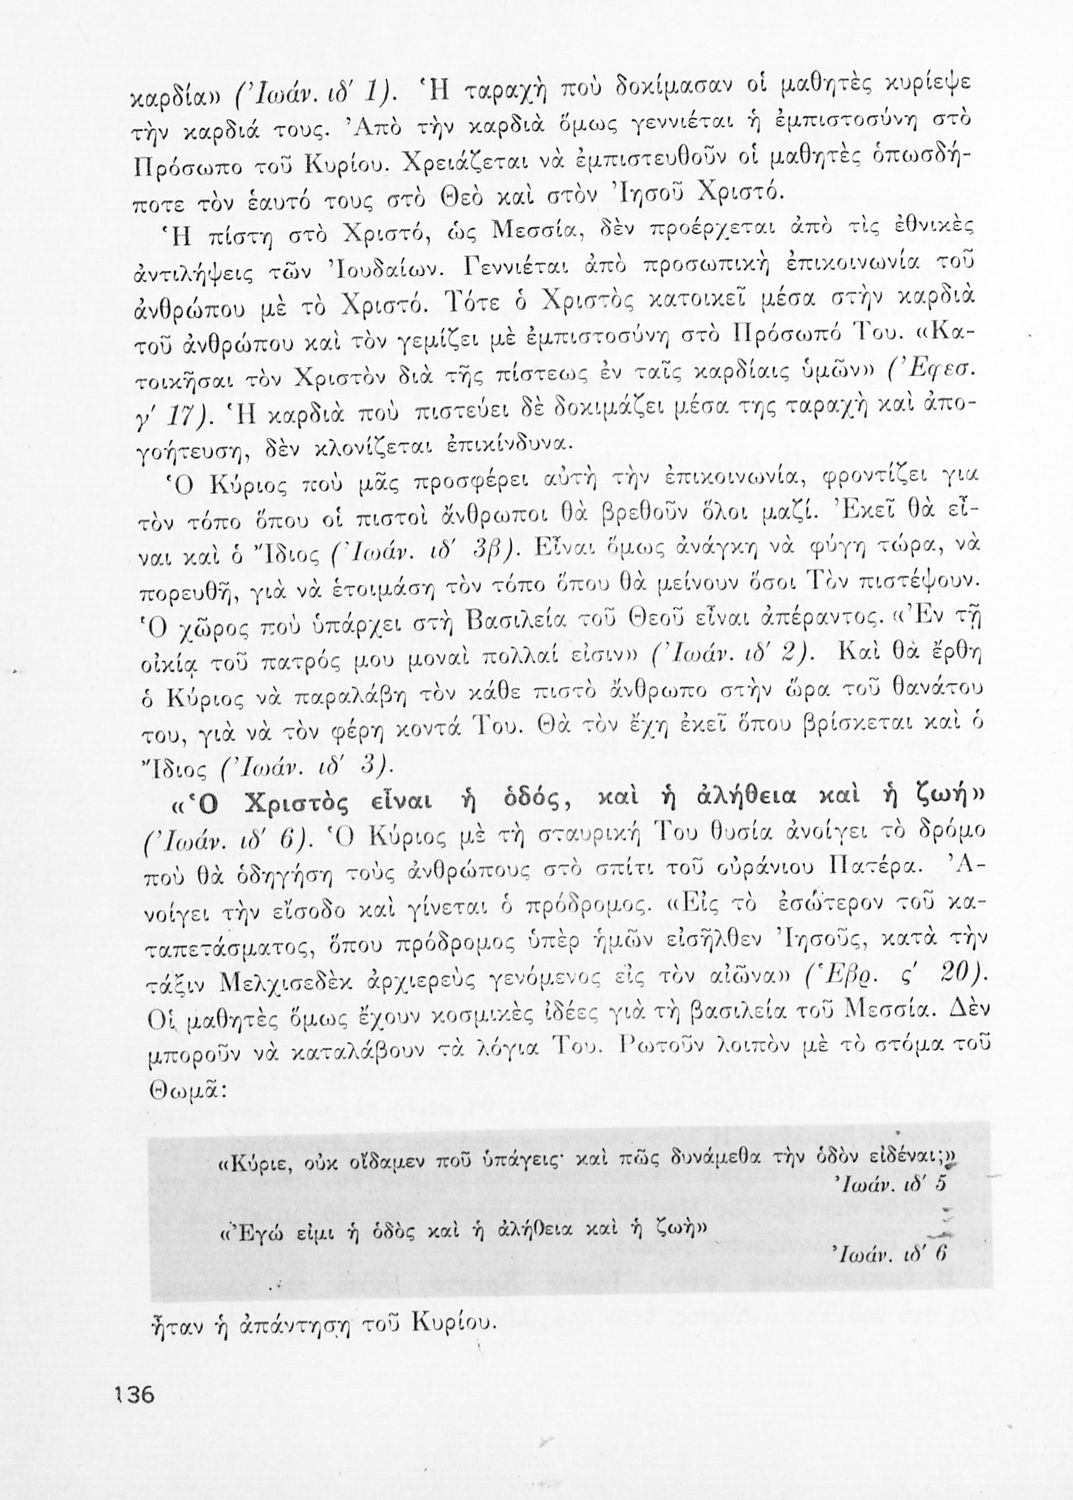 καρδία» (Ἰωάν. ιδ′ 1). Ἡ ταραχὴ ποὺ δοκίμασαν οἱ μαθητὲς κυρίεψε
τὴν καρδιά τους. Ἀπὸ τὴν καρδιὰ ὅμως γεννιέται ἡ ἐμπιστοσύνη στὸ
Πρόσωπο τοῦ Κυρίου. Χρειάζεται νὰ ἐμπιστευθοῦν οἱ μαθητὲς ὁπωσδή-
ποτε τὸν ἑαυτό τους στὸ Θεὸ καὶ στὸν Ἰησοῦ Χριστό.
Ἡ πίστη στὸ Χριστό, ὡς Μεσσία, δὲν προέρχεται ἀπὸ τὶς ἐθνικὲς
ἀντιλήψεις τῶν Ἰουδαίων. Γεννιέται ἀπὸ προσωπικὴ ἐπικοινωνία τοῦ
ἀνθρώπου μὲ τὸ Χριστό. Τότε ὁ Χριστὸς κατοικεῖ μέσα στὴν καρδιὰ
τοῦ ἀνθρώπου καὶ τὸν γεμίζει μὲ ἐμπιστοσύνη στὸ Πρόσωπό Του. «Κα-
τοικῆσαι τὸν Χριστὸν διὰ τῆς πίστεως ἐν ταῖς καρδίαις ὑμῶν» (Ἐφεσ.
γ′ 17). Ἡ καρδιὰ ποὺ πιστεύει δὲ δοκιμάζει μέσα της ταραχὴ καὶ ἀπο-
γοήτευση, δὲν κλονίζεται ἐπικίνδυνα.
Ὁ Κύριος ποὺ μᾶς προσφέρει αὐτὴ τὴν ἐπικοινωνία, φροντίζει για
τὸν τόπο ὅπου οἱ πιστοὶ ἄνθρωποι θὰ βρεθοῦν ὅλοι μαζί. Ἐκεῖ θὰ εἶ-
ναι καὶ ὁ Ἴδιος (Ἰωάν. ιδ′ 3β). Εἶναι ὅμως ἀνάγκη νὰ φύγη τώρα, νὰ
πορευθῆ, γιὰ νὰ ἑτοιμάση τὸν τόπο ὅπου θὰ μείνουν ὅσοι Τὸν πιστέψουν.
Ὁ χῶρος ποὺ ὑπάρχει στὴ Βασιλεία τοῦ Θεοῦ εἶναι ἀπέραντος. «Ἐν τῇ
οἰκίᾳ τοῦ πατρός μου μοναὶ πολλαί εἰσιν» (Ἰωάν. ιδ′ 2). Καὶ θὰ ἔρθη
ὁ Κύριος νὰ παραλάβη τὸν κάθε πιστὸ ἄνθρωπο στὴν ὥρα τοῦ θανάτου
του, γιὰ νὰ τὸν φέρη κοντά Του. Θὰ τὸν ἔχη ἐκεῖ ὅπου βρίσκεται καὶ ὁ
Ἴδιος (Ἰωάν. ιδ′ 3).
«Ὁ Χριστὸς εἶναι ἡ ὁδός, καὶ ἡ ἀλήθεια καὶ ἡ ζωή»
(Ἰωάν. ιδ′ 6). Ὁ Κύριος μὲ τὴ σταυρική Του θυσία ἀνοίγει τὸ δρόμο
ποὺ θὰ ὁδηγήση τοὺς ἀνθρώπους στὸ σπίτι τοῦ οὐράνιου Πατέρα. Ἀ-
νοίγει τὴν εἴσοδο καὶ γίνεται ὁ πρόδρομος. «Εἰς τὸ ἐσώτερον τοῦ κα-
ταπετάσματος, ὅπου πρόδρομος ὑπὲρ ἡμῶν εἰσῆλθεν Ἰησοῦς, κατὰ τὴν
τάξιν Μελχισεδὲκ ἀρχιερεὺς γενόμενος εἰς τὸν αἰῶνα» (Ἑβρ. ς′ 20).
Οἱ μαθητὲς ὅμως ἔχουν κοσμικὲς ἰδέες γιὰ τὴ βασιλεία τοῦ Μεσσία. Δὲν
μποροῦν νὰ καταλάβουν τὰ λόγια Του. Ρωτοῦν λοιπὸν μὲ τὸ στόμα τοῦ
Θωμᾶ:
«Κύριε, οὐκ οἴδαμεν ποῦ ὑπάγεις· καὶ πῶς δυνάμεθα τὴν ὁδὸν εἰδέναι;»
Ἰωάν. ιδ′ 5
«Ἐγώ εἰμι ἡ ὁδὸς καὶ ἡ ἀλήθεια καὶ ἡ ζωὴ»
Ἰωάν. ιδ′ 6
ἦταν ἡ ἀπάντηση τοῦ Κυρίου.
136